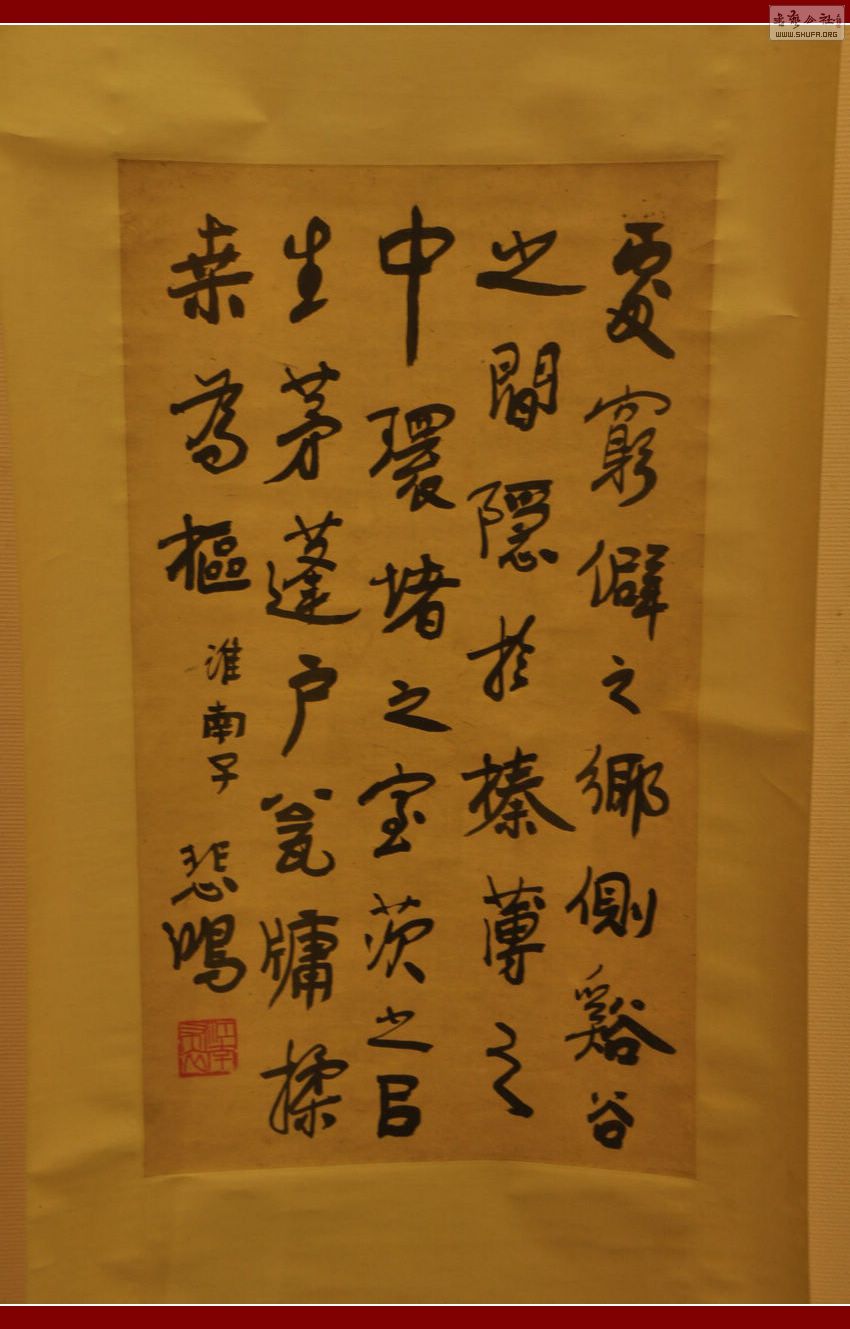 處窮僻之鄉側谿谷
之間隱於榛薄之
中環堵之室茨之㠯
生茅蓬戶瓮牖揉
桒為樞 淮南子 悲鴻
書藝公社
WWW.SHUFA.ORG